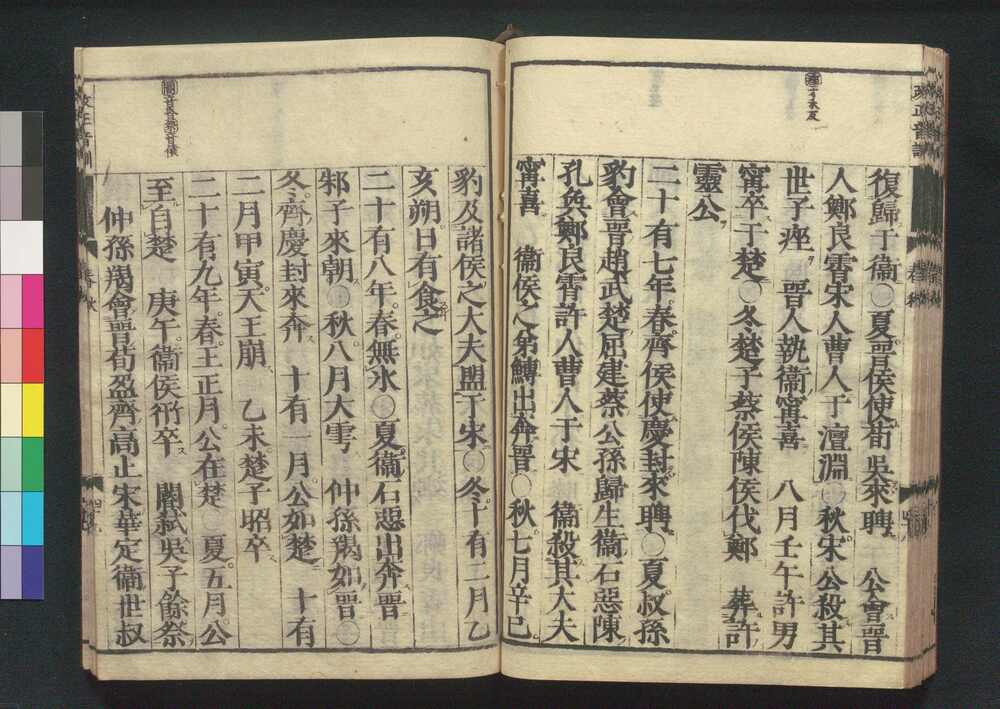 復歸于衞○夏晉侯使荀吳來聘 公會晉
人鄭良霄宋人曹人于澶淵○秋宋公殺其
世子痤 晉人執衞甯喜 八月壬午許男
甯卒于楚○冬楚子蔡侯陳侯伐鄭 葬許
靈公
二十有七年春齊侯使慶封來聘○夏叔孫
豹會晉趙武楚屈建蔡公孫歸生衞石惡陳
孔奐鄭良霄許人曹人于宋 衞殺其大夫
甯喜 衞侯之弟鱄出奔晉○秋七月辛巳
豹及諸侯之大夫盟于宋○冬十有二月乙
亥朔日有食之
二十有八年春無氷○夏衞石惡出奔晉
邾子來朝○秋八月大雩 仲孫羯如晉○
冬齊慶封來奔 十有一月公如楚 十有
二月甲寅天王崩 乙未楚子昭卒
二十有九年春王正月公在楚○夏五月公
至自楚 庚午衞侯衎卒 閽弑吳子餘祭
仲孫羯會晉荀盈齊高止宋華定衞世叔